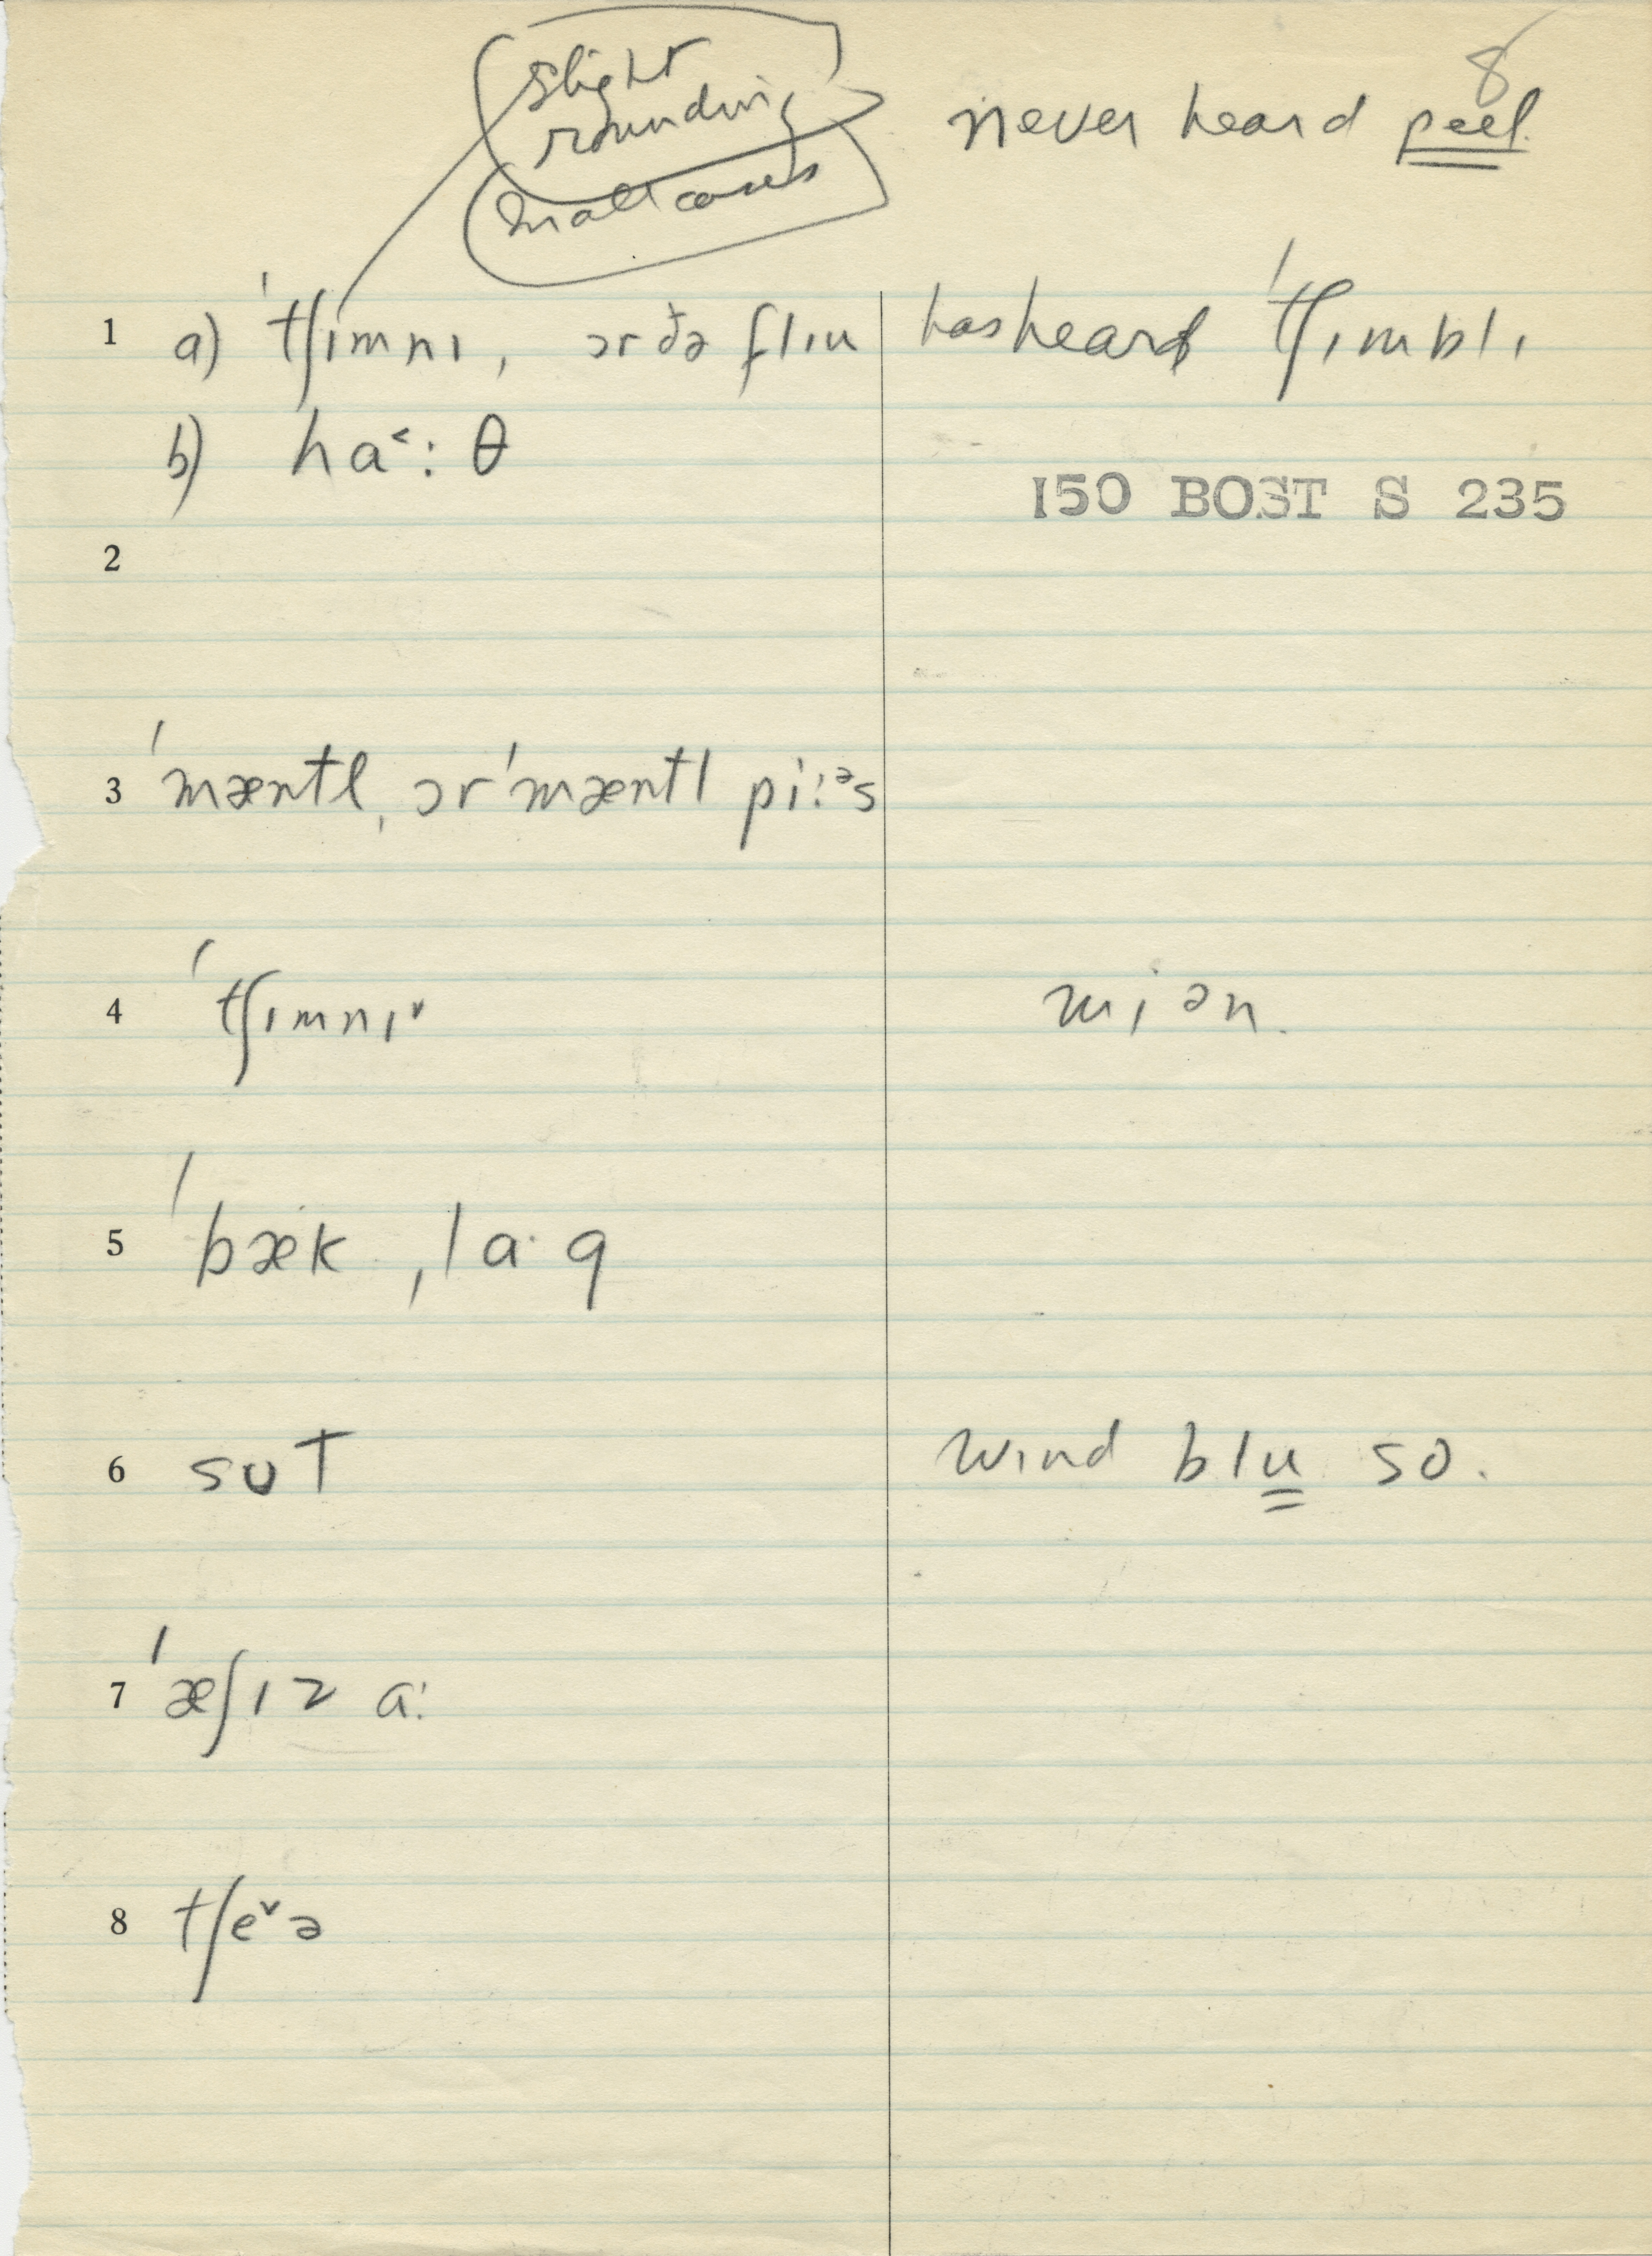 8
slight
rounding
in all cases
never heard peel.
1 a) ˈtʃɪmnɪ, ɔr ðə flɪu has heard ˈtʃɪmblɪ
b) ha˂: θ
150 BOST S 235
2
3 ˈmæntl, ɔr ˈmæntl pi:ᵊs
4 ˈtʃɪmnɪ˅ mi ən.
5 ˈbæk ˌlɑ· g
6 sʊt wind blu so.
7 ˈæʃɪz a:
8 tʃe˅ə